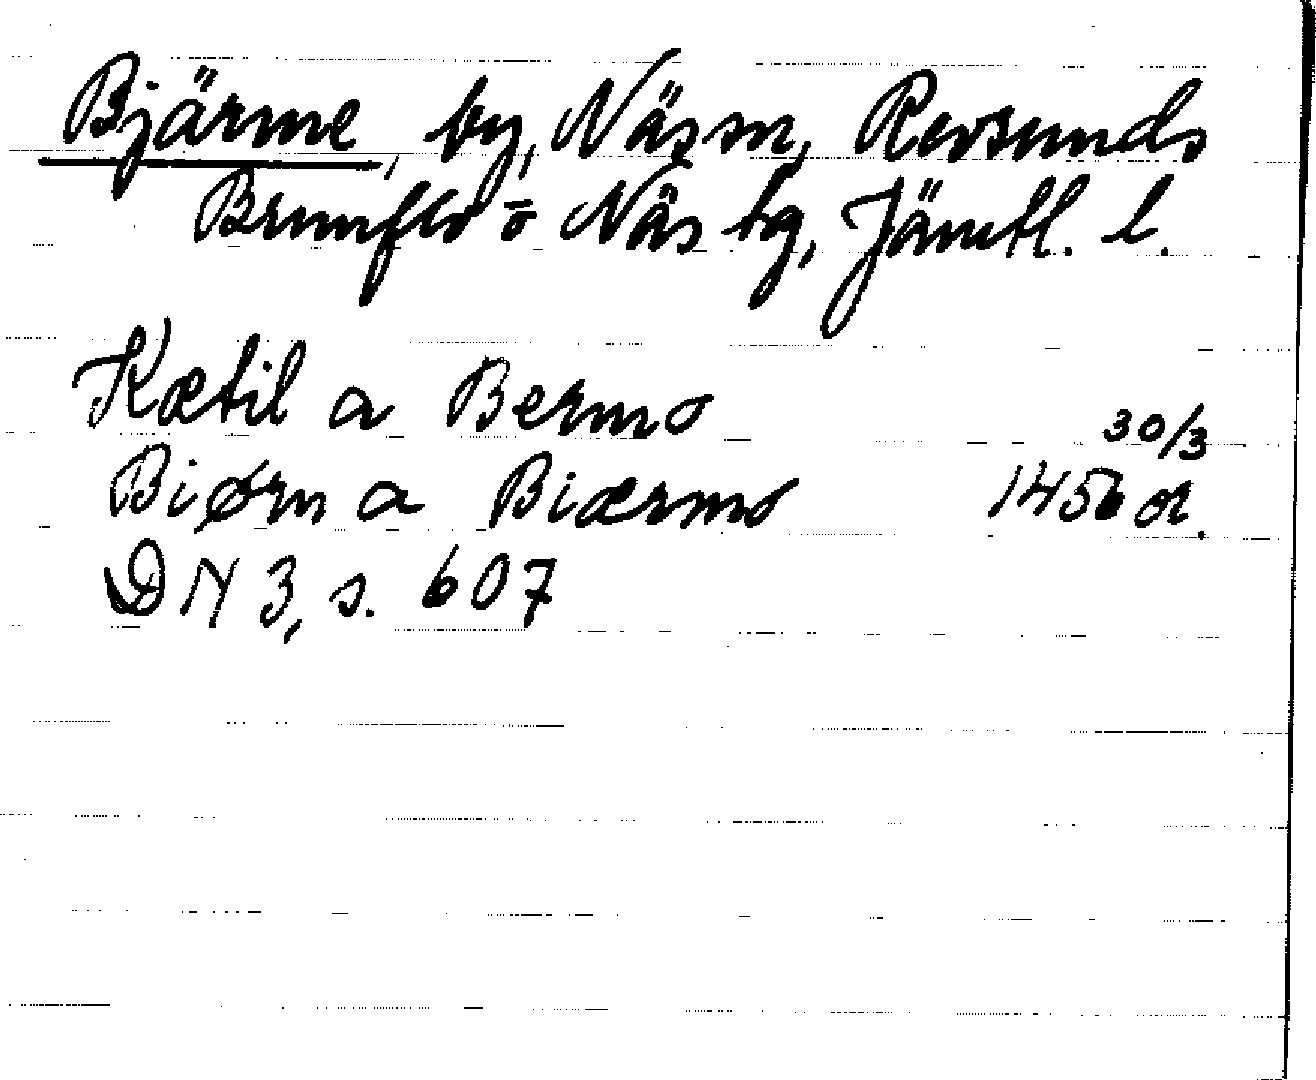 Bjärme, by, Näs sn, Revsunds
Brunflo o Näs tg, Jämtl. l.
Kætil a Bermo
30/3
Biørn a Biærmo 1456 or.
DN 3, s. 607